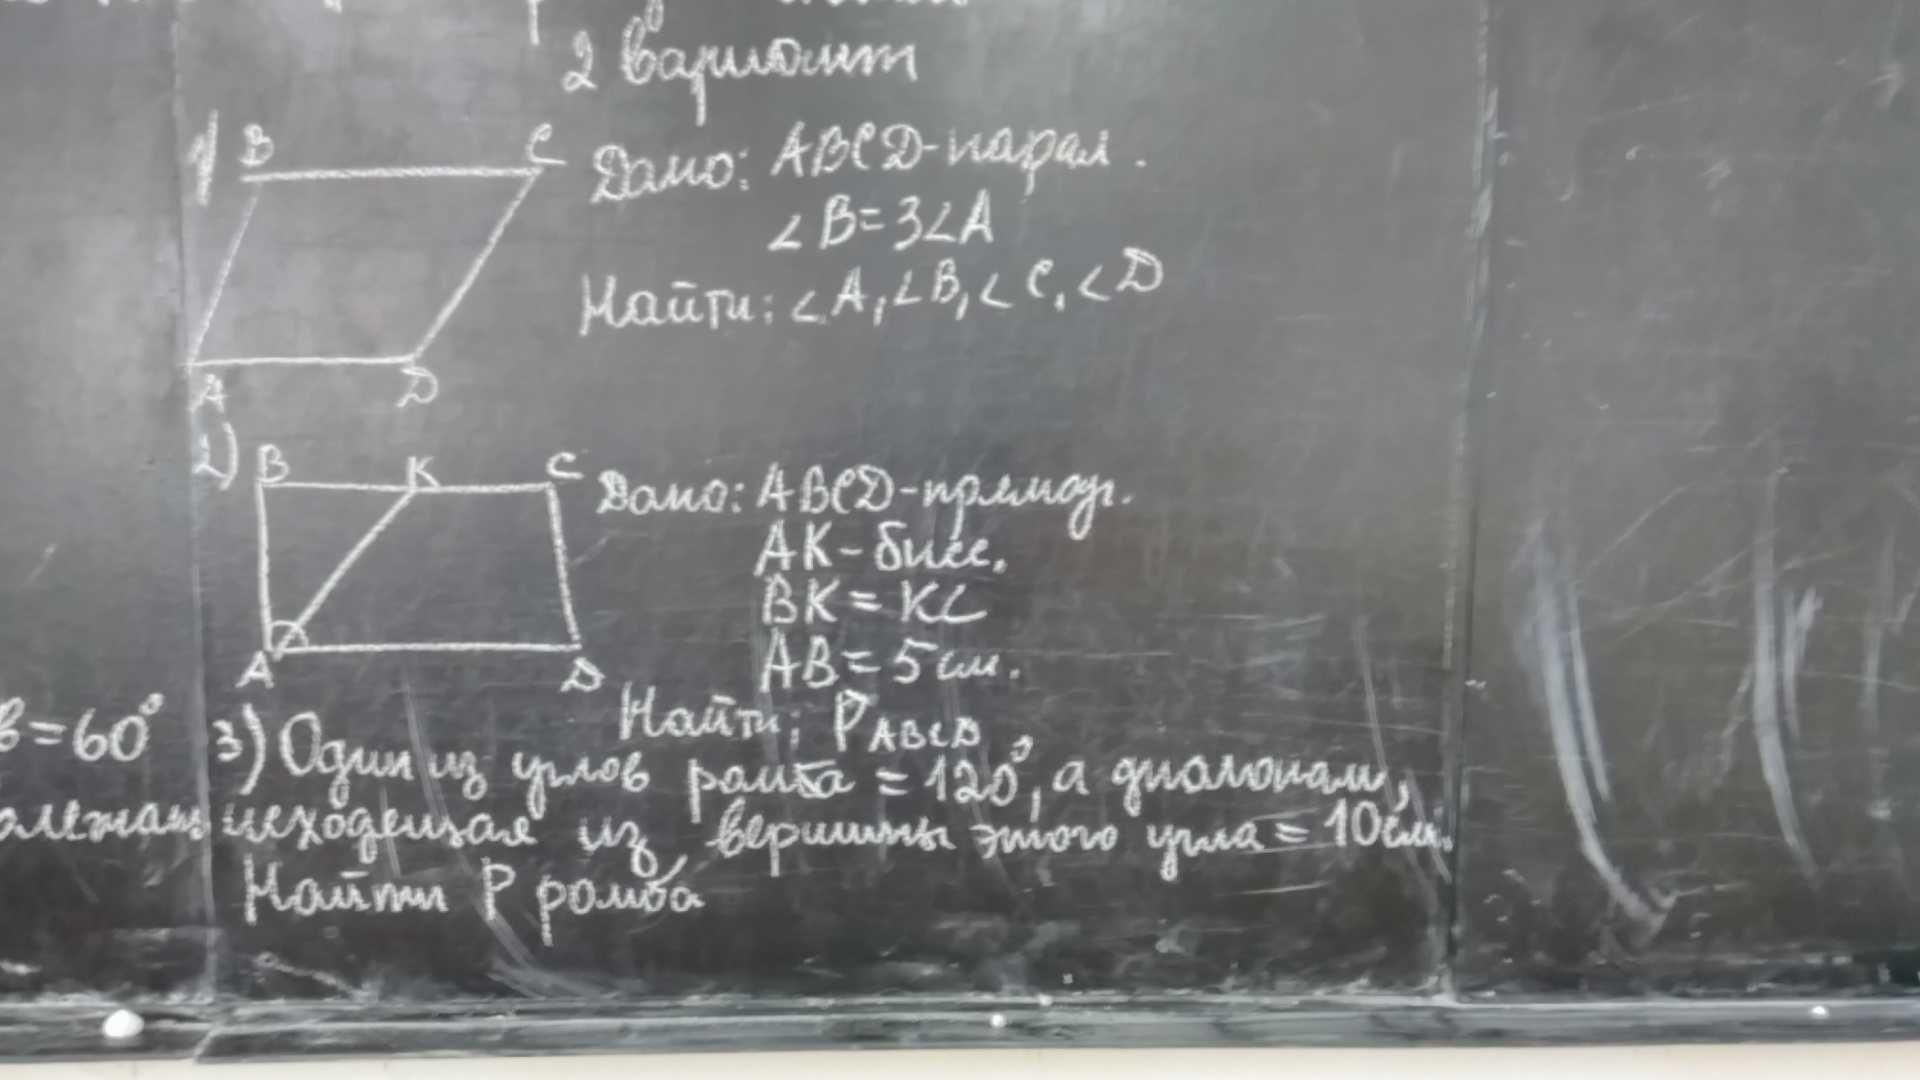 2 вариант
1) B C
Дано: ABCD-парал.
∠B=3∠A
Найти: ∠A,∠B,∠C,∠D
A D
2) B K C
Дано: ABCD-прямоуг.
AK-бисс.
BK=KC
AB=5см.
A D
Найти: P ABCD
в=60°
3) Один из углов ромба =120°, а диагонал,
исходещая из вершины этого угла = 10см.
Найти P ромба